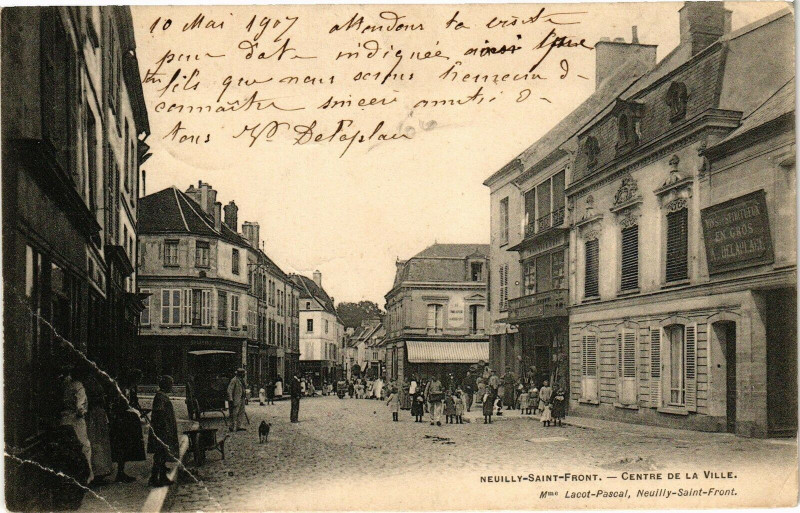 10 Mai 1907 attendons ta visite
pour date indiquée ainsi
fils que nous serons heureux de
connaître sincère amitié à
tous Vve Delaplace
VINS SPIRITUEUX
EN GROS
A. DELAPLACE
NEUILLY-SAINT-FRONT. — CENTRE DE LA VILLE.
Mme Lacot-Pascal, Neuilly-Saint-Front.